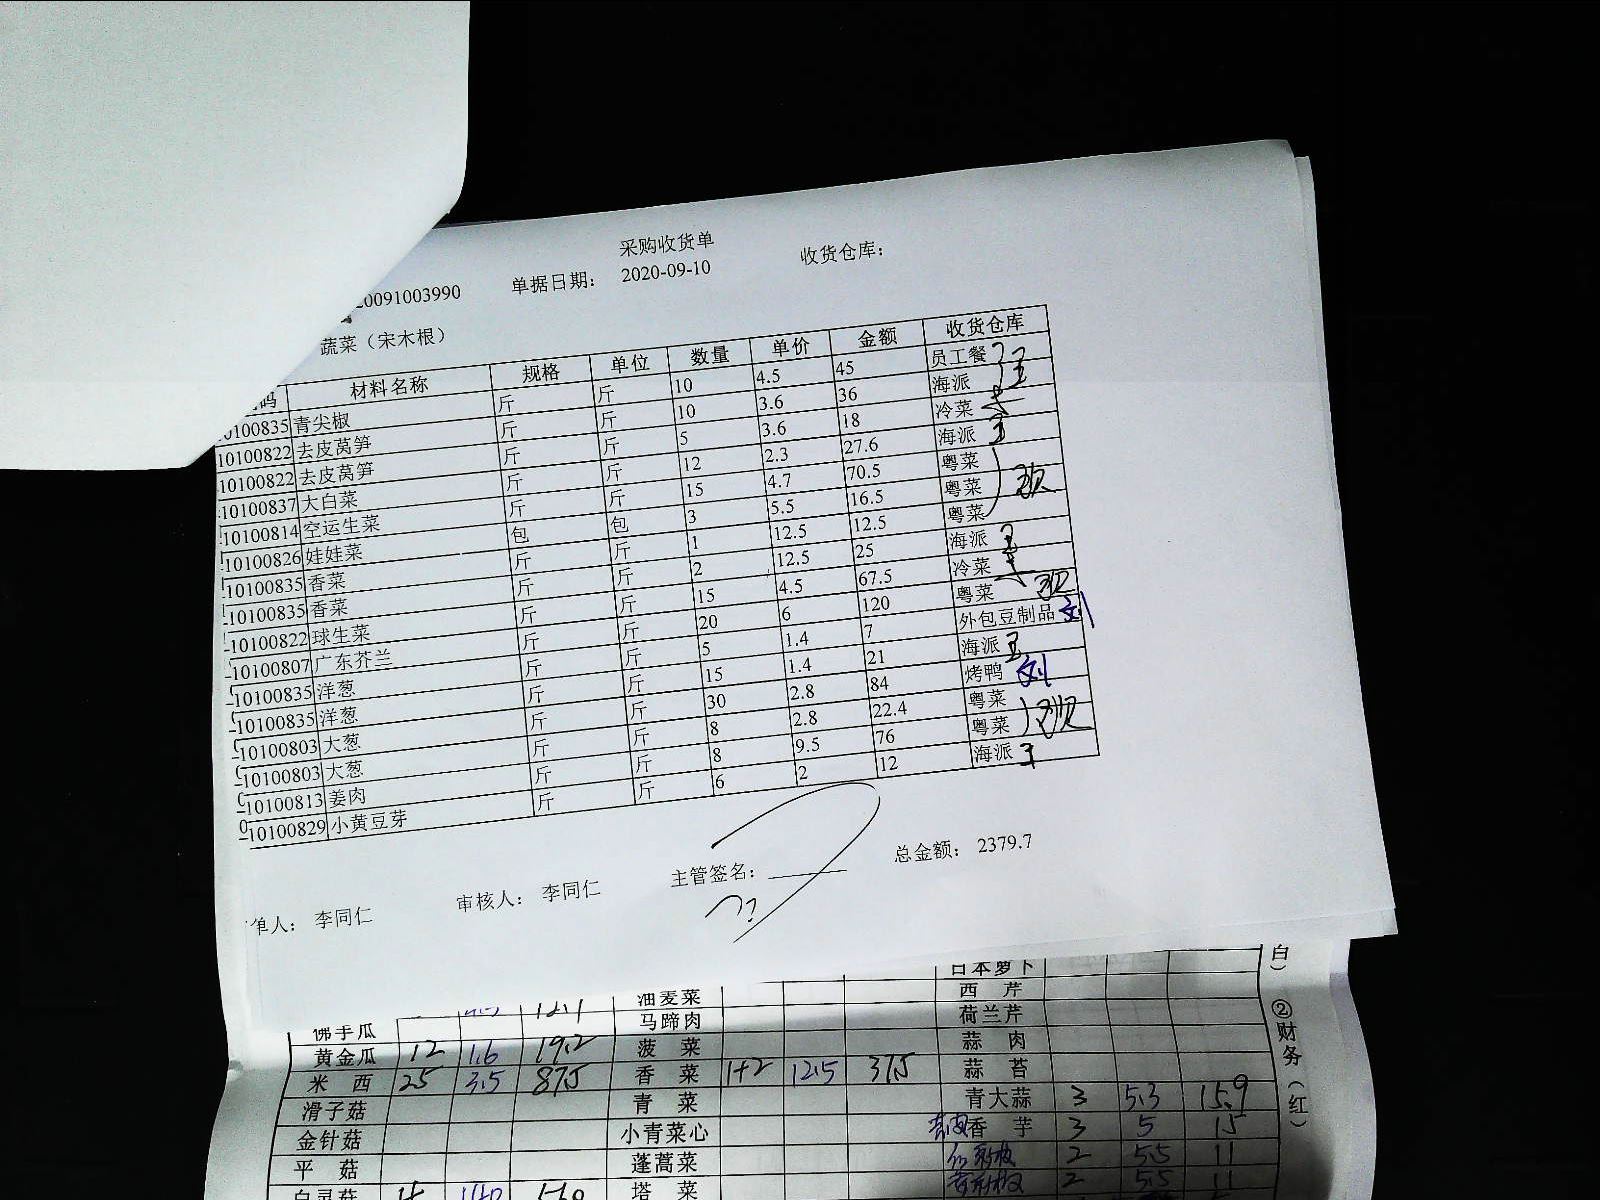 采购收货单
20091003990 单据日期： 2020-09-10 收货仓库：
蔬菜（宋木根）
码 材料名称 规格 单位 数量 单价 金额 收货仓库
10100835 青尖椒 斤 斤 10 4.5 45 员工餐
10100822 去皮莴笋 斤 斤 10 3.6 36 海派 王
10100822 去皮莴笋 斤 斤 5 3.6 18 冷菜
10100837 大白菜 斤 斤 12 2.3 27.6 海派 王
10100814 空运生菜 斤 斤 15 4.7 70.5 粤菜
10100826 娃娃菜 包 包 3 5.5 16.5 粤菜
10100835 香菜 斤 斤 1 12.5 12.5 粤菜
10100835 香菜 斤 斤 2 12.5 25 海派 王
10100822 球生菜 斤 斤 15 4.5 67.5 冷菜
10100807 广东芥兰 斤 斤 20 6 120 粤菜
10100835 洋葱 斤 斤 5 1.4 7 外包豆制品 刘
10100835 洋葱 斤 斤 15 1.4 21 海派 王
10100803 大葱 斤 斤 30 2.8 84 烤鸭 刘
10100803 大葱 斤 斤 8 2.8 22.4 粤菜
10100813 姜肉 斤 斤 8 9.5 76 粤菜
10100829 小黄豆芽 斤 斤 6 2 12 海派 王
单人： 李同仁 审核人： 李同仁 主管签名： 总金额： 2379.7
日本萝卜
油麦菜 西芹
佛手瓜 马蹄肉 荷兰芹
黄金瓜 12 1.6 19.2 菠菜 蒜肉
米西 25 3.5 87.5 香菜 1+2 12.5 37.5 蒜苔
滑子菇 青菜 青大蒜 3 5.3 15.9
金针菇 小青菜心 去皮香芋 3 5 15
平菇 蓬蒿菜 2 5.5 11
白灵菇 塔菜 2 5.5 11
白）
②财务（红）